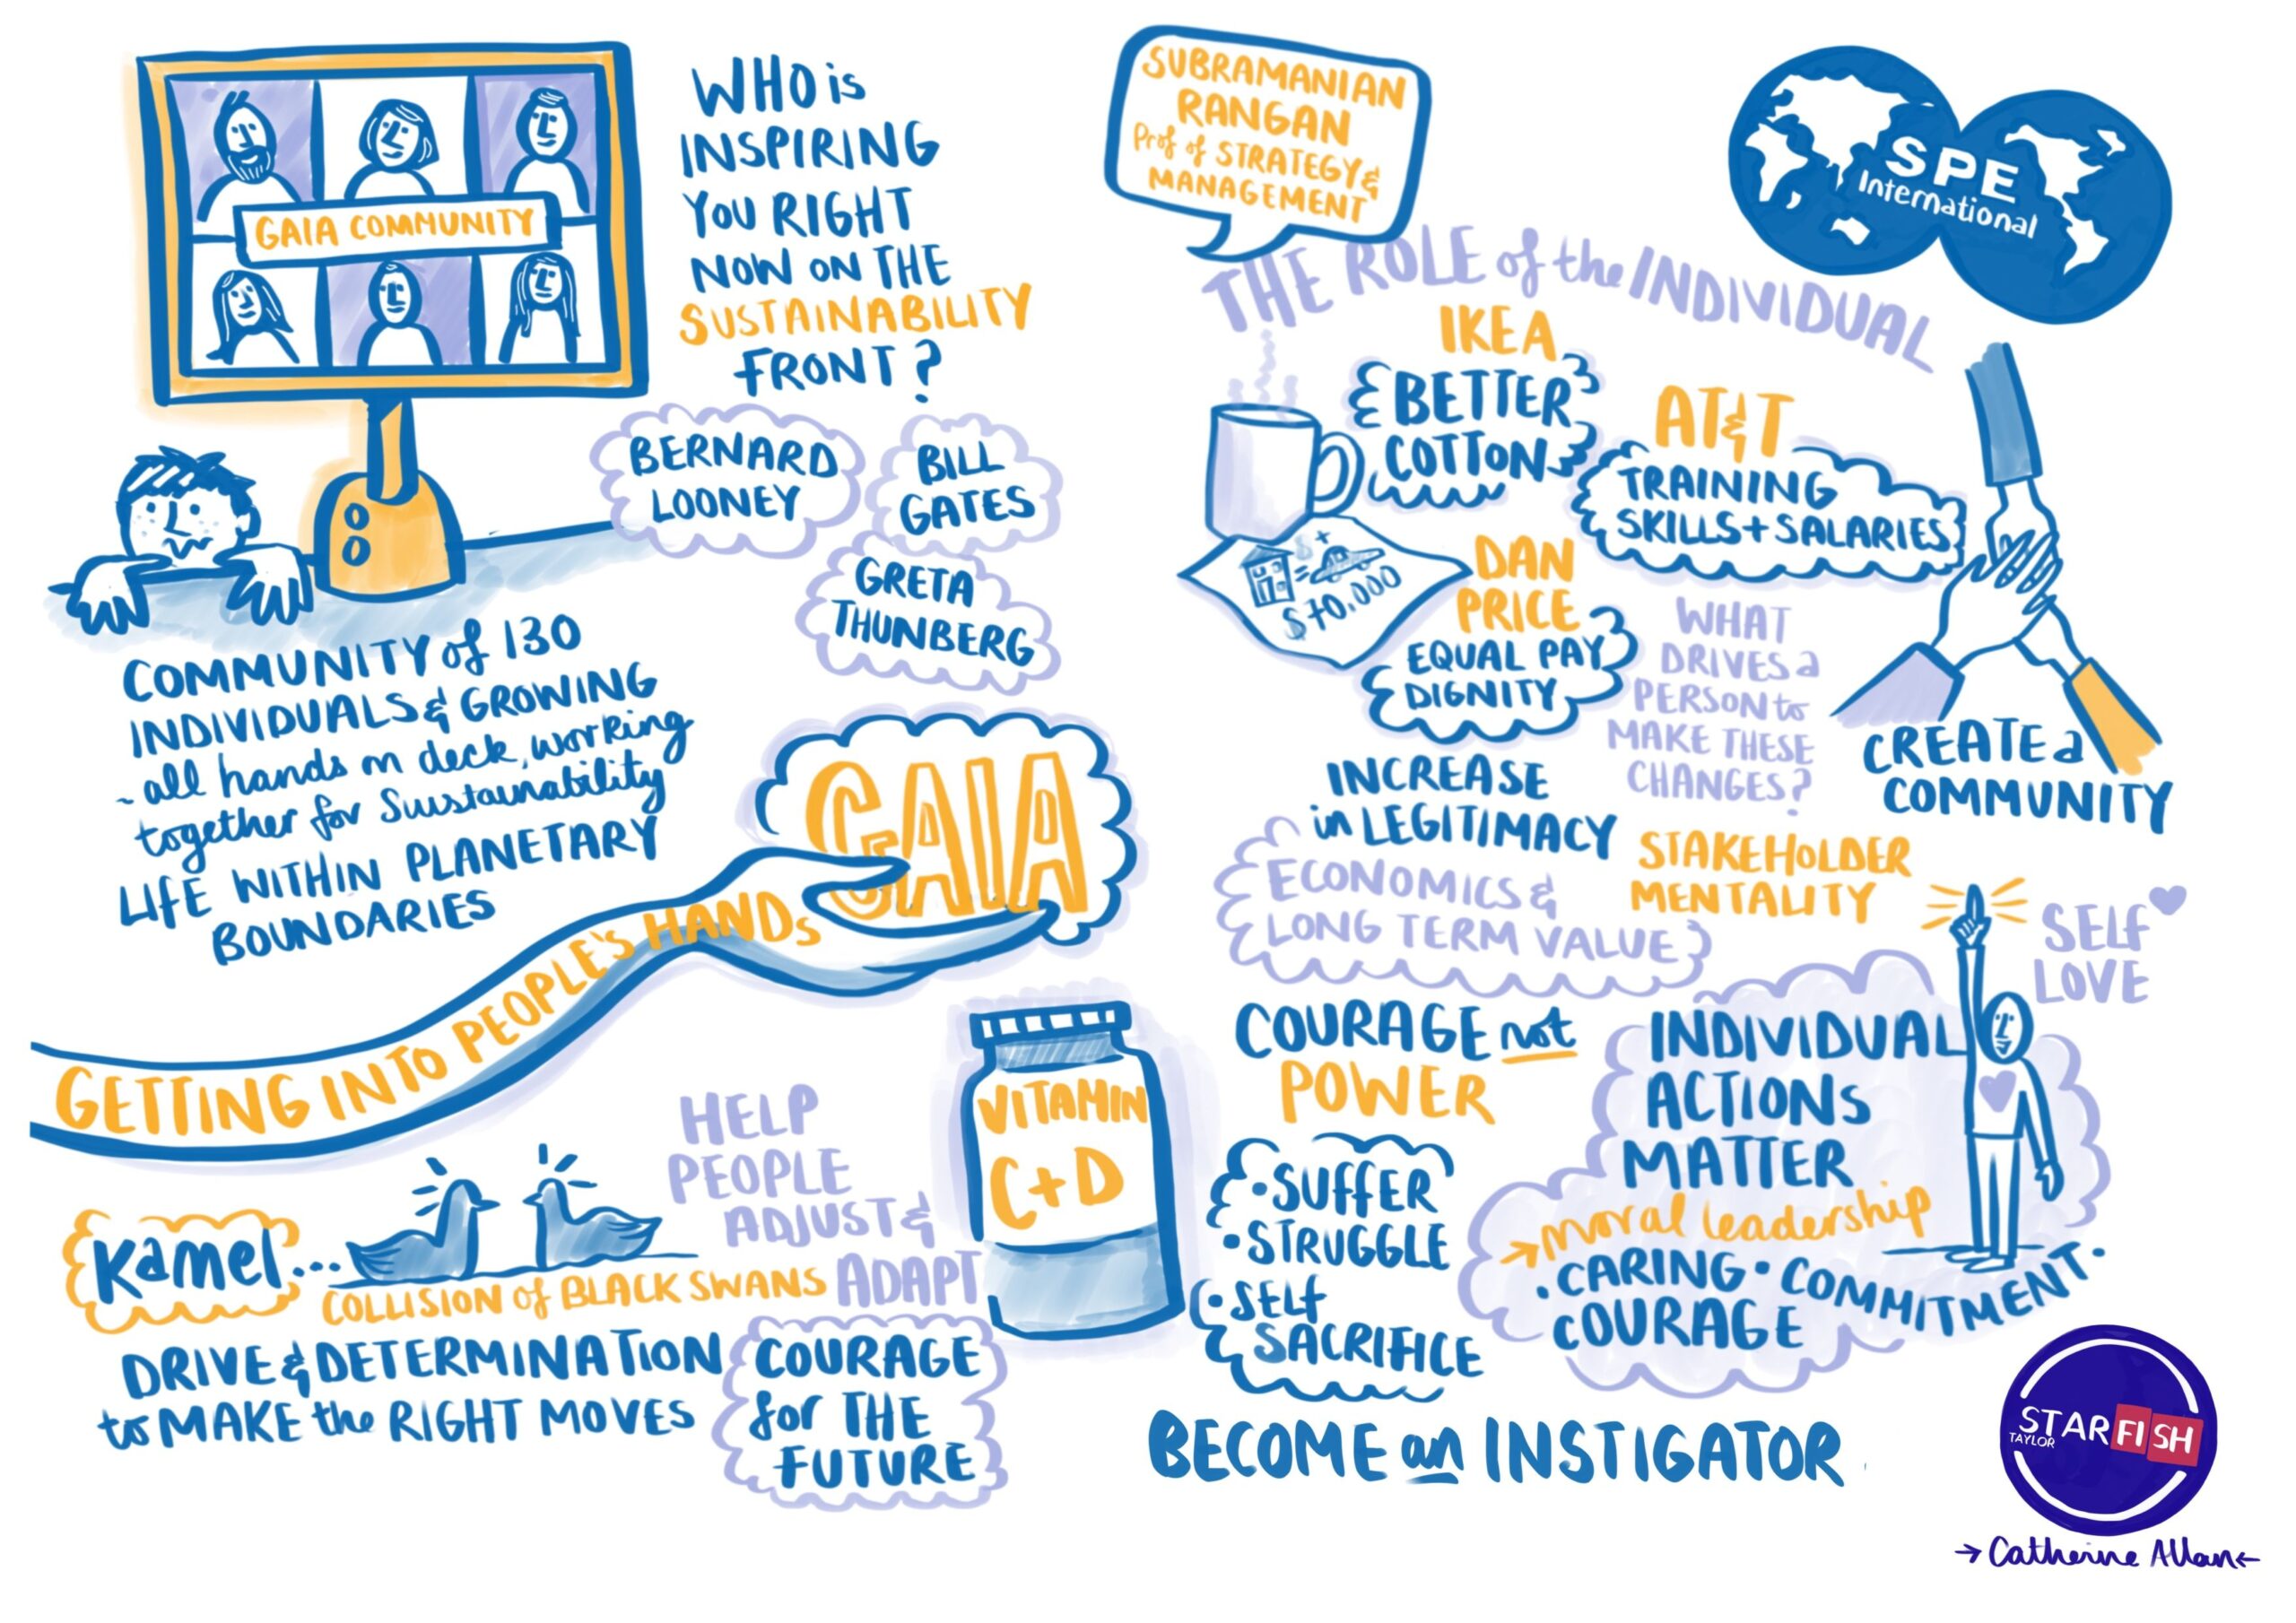 GAIA COMMUNITY
WHO is
INSPIRING
YOU RIGHT
NOW ON THE
SUSTAINABILITY
FRONT?
BERNARD
LOONEY
BILL
GATES
GRETA
THUNBERG
COMMUNITY of 130
INDIVIDUALS & GROWING
- all hands on deck, working
together for Sustainability
LIFE WITHIN PLANETARY
BOUNDARIES
GAIA
GETTING INTO PEOPLE'S HANDS
Kamel...
COLLISION of BLACK SWANS
HELP
PEOPLE
ADJUST &
ADAPT
VITAMIN
C+D
DRIVE & DETERMINATION
to MAKE the RIGHT MOVES
COURAGE
for THE
FUTURE
SUBRAMANIAN
RANGAN
Prof of STRATEGY &
MANAGEMENT
SPE
International
THE ROLE of the INDIVIDUAL
IKEA
BETTER
COTTON
AT&T
TRAINING
SKILLS + SALARIES
$ +
=
$70,000
DAN
PRICE
EQUAL PAY
DIGNITY
WHAT
DRIVES a
PERSON to
MAKE THESE
CHANGES?
CREATE a
COMMUNITY
INCREASE
in LEGITIMACY
ECONOMICS &
LONG TERM VALUE
STAKEHOLDER
MENTALITY
SELF
LOVE
COURAGE not
POWER
• SUFFER
• STRUGGLE
• SELF
SACRIFICE
INDIVIDUAL
ACTIONS
MATTER
→ moral leadership
• CARING • COMMITMENT •
COURAGE
BECOME an INSTIGATOR
STARFISH
TAYLOR
→ Catherine Allan ←